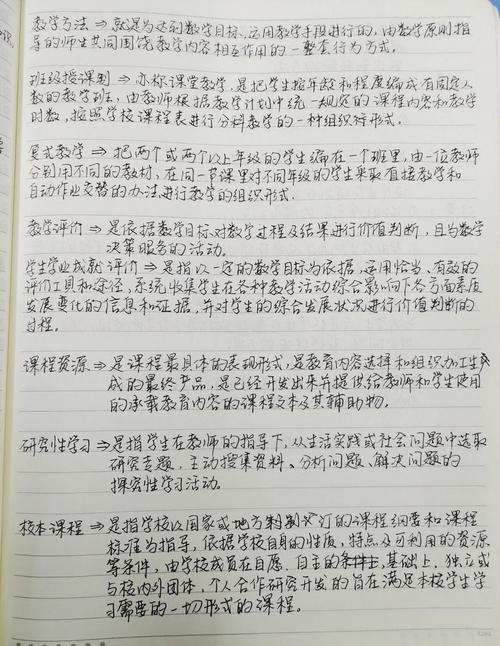 教学方法 ⇒ 就是为达到教学目标,运用教学手段进行的,由教学原则指
导的师生共同围饶教学内容相互作用的一整套行为方式.
班级授课制 ⇒ 亦称课堂教学,是把学生按年龄和程度编成有固定人
数的教学班,由教师根据教学计划中统一规定的课程内容和教学
时数,按照学校课程表进行分科教学的一种组织形式.
复式教学 ⇒ 把两个或两个以上年级的学生编在一个班里,由一位教师
分别用不同的教材,在同一节课里对不同年级的学生采取直接教学和
自动作业交替的办法,进行教学的组织形式.
教学评价 ⇒ 是依据教学目标对教学过程及结果进行价值判断,且为教学
决策服务的活动.
学生学业成就评价 ⇒ 是指以一定的教学目标为依据,运用恰当、有效的
评价工具和途径,系统收集学生在各种教学活动综合影响下各方面素质
发展变化的信息和证据,并对学生的综合发展状况进行价值判断的
过程.
课程资源 ⇒ 是课程最具体的表现形式,是教育内容选择和组织加工生
成的最终产品,是已经开发出来并提供给教师和学生使用
的承载教育内容的课程文本及其辅助物.
研究性学习 ⇒ 是指学生在教师的指导下,从生活实践或社会问题中选取
研究专题,主动搜集资料、分析问题、解决问题的
探究性学习活动.
校本课程 ⇒ 是指学校以国家或地方制订的课程纲要和课程
标准为指导,依据学校自身的性质,特点及可利用的资源
等条件,由学校成员在自愿.自主的基础上,独立或
与校内外团体,个人合作研究开发的旨在满足本校学生学
习需要的一切形式的课程。